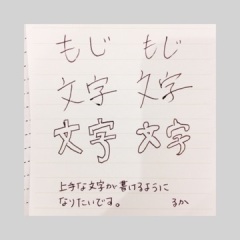 もじ もじ
文字 文字
文字 文字
上手な文字が書けるように
なりたいです。 るか